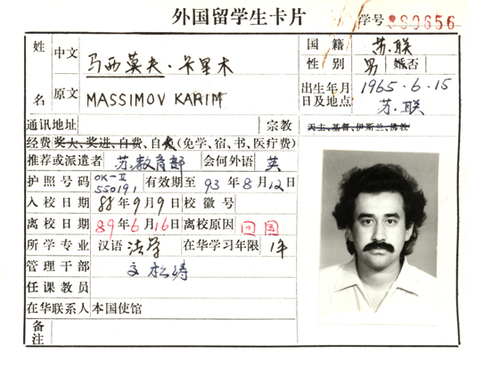 外国留学生卡片
学号 880656
姓名 中文 马西莫夫·卡里木 国籍 苏.联
性别 男 婚否
原文 MASSIMOV KARIM 出生年月日及地点 1965.6.15 苏.联
通讯地址 宗教 天主、基督、伊斯兰、佛教
经费 奖大、奖进、自费、自大(免学、宿、书、医疗费)
推荐或派遣者 苏.教育部 会何外语 英
护照号码 OK-II 550191 有效期至 93年8月12日
入校日期 88年9月9日 校徽号
离校日期 89年6月16日 离校原因 回国
所学专业 汉语 法学 在华学习年限 1年
管理干部
任课教员
在华联系人本国使馆
备注